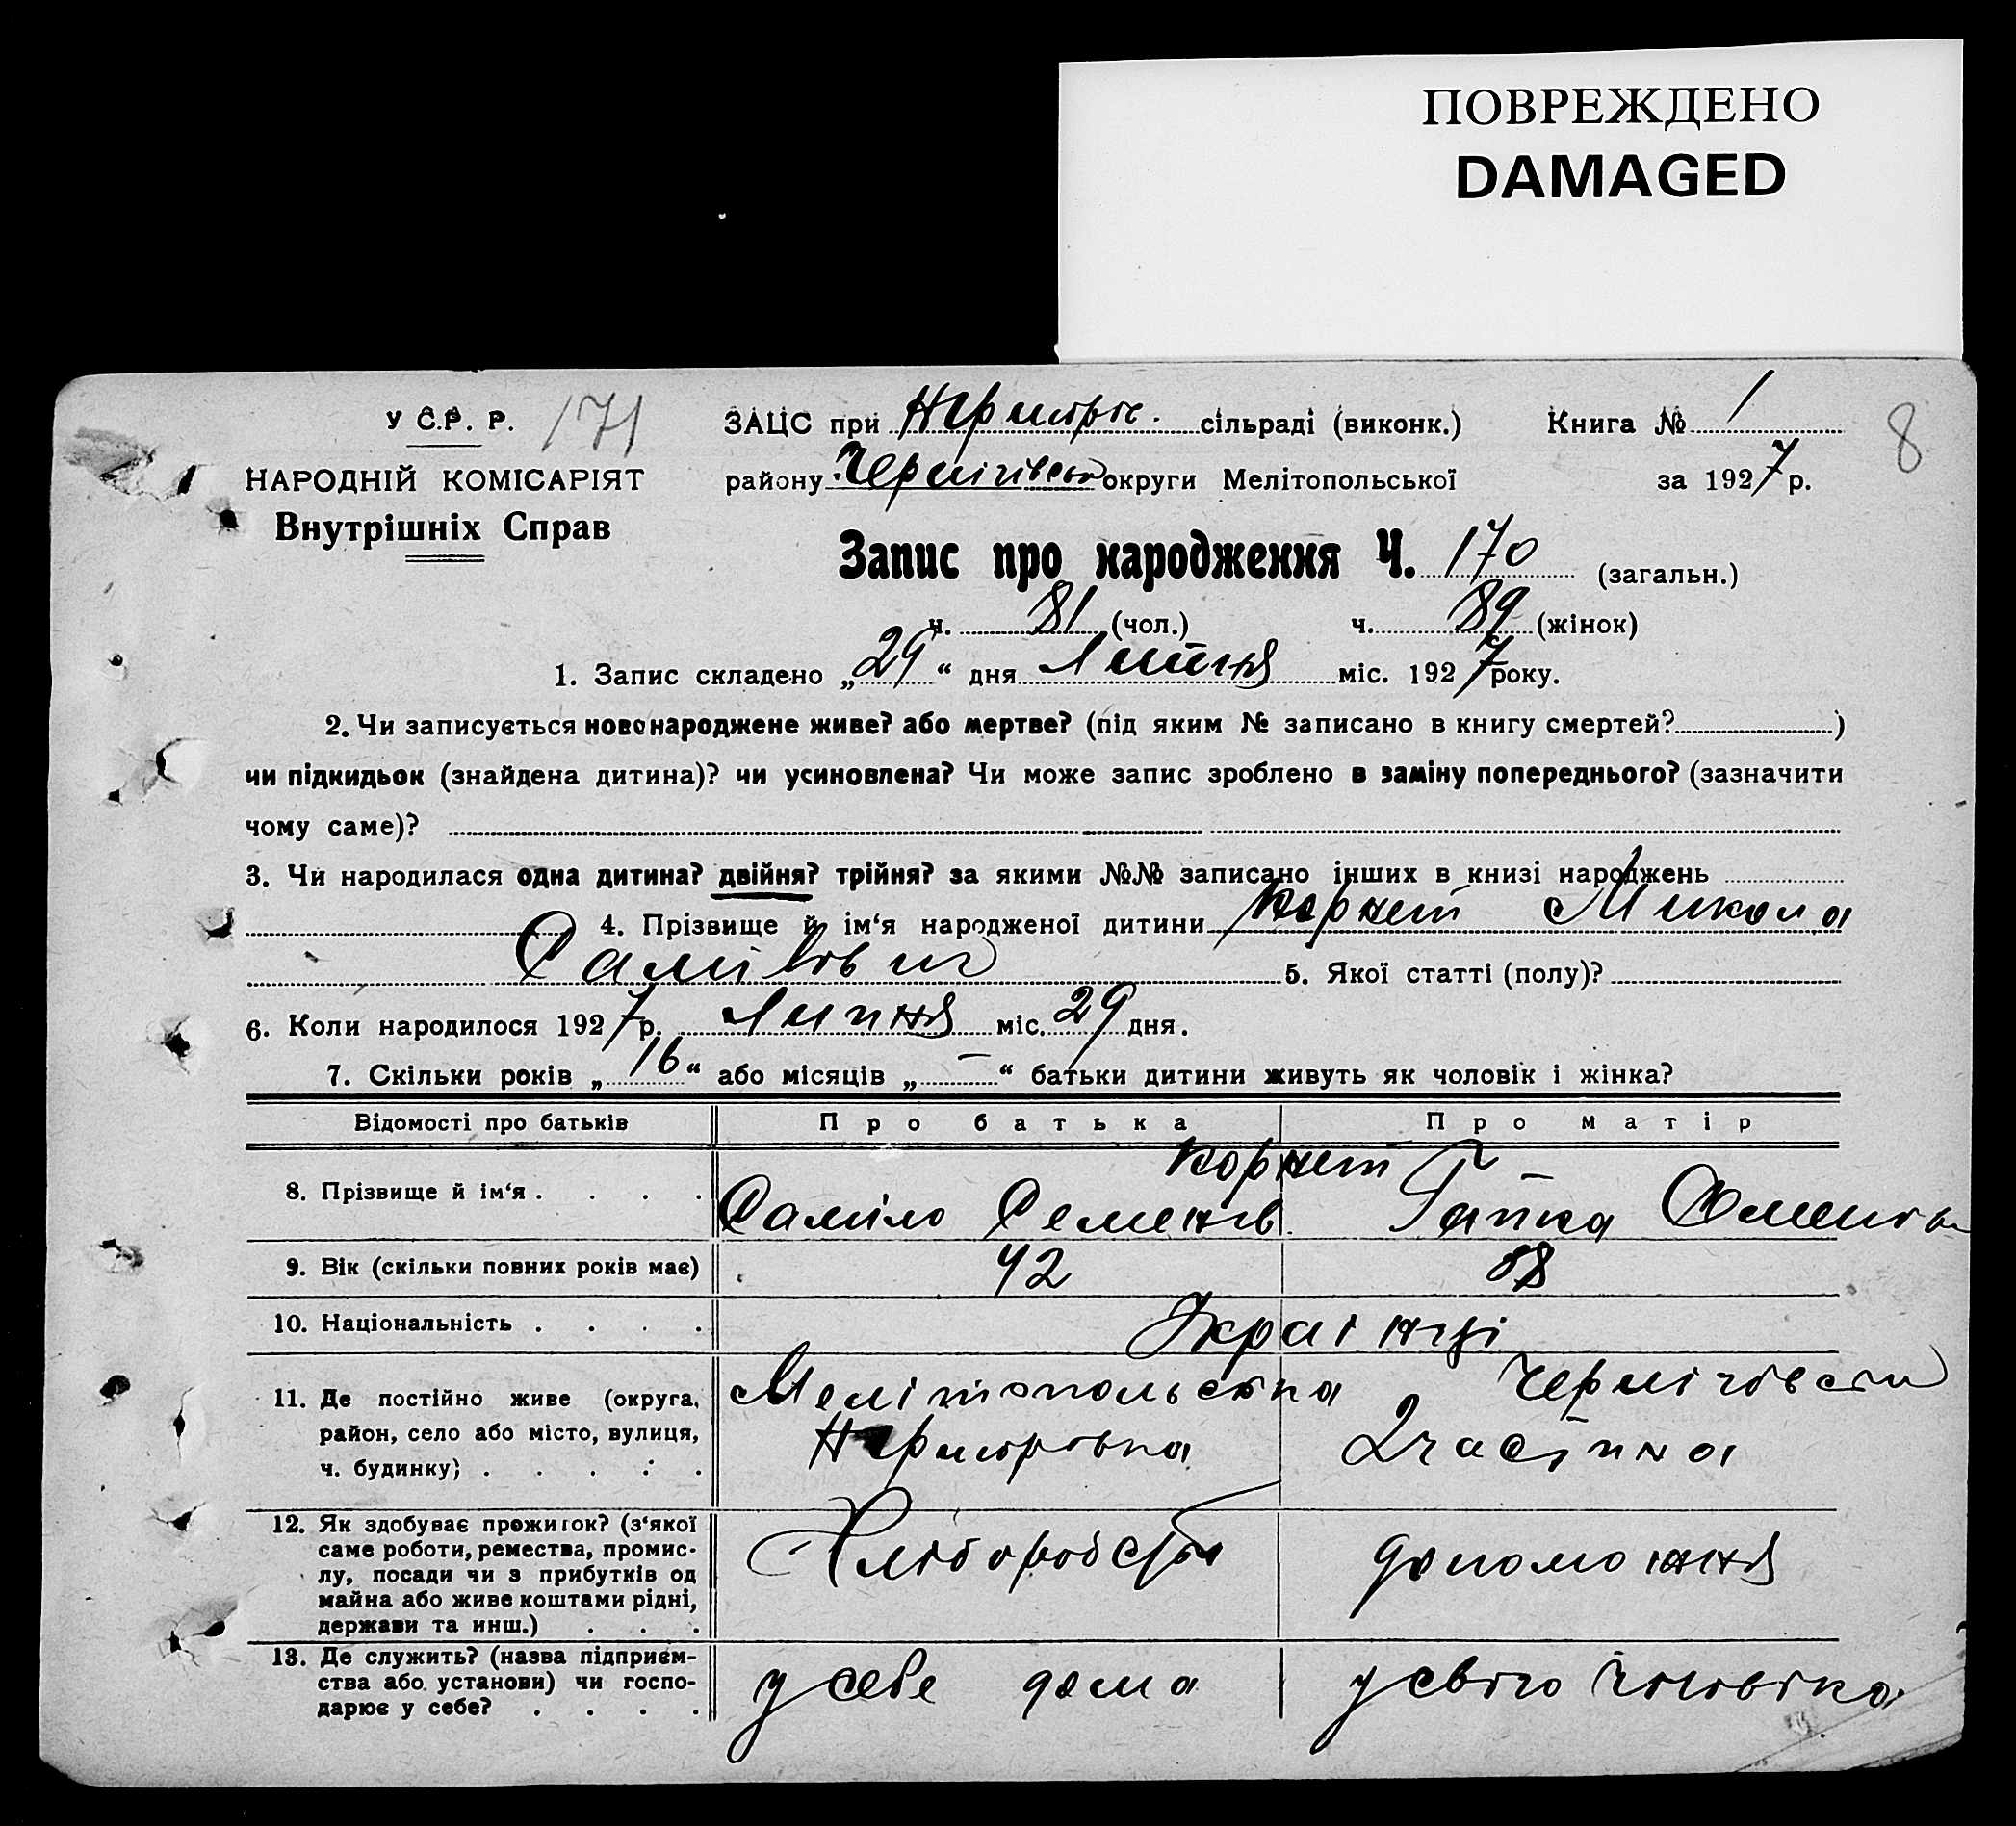 ПОВРЕЖДЕНО
DAMAGED
У С.Р. Р. 171 ЗАЦС при сільраді (виконк.) Книга № 1 8
НАРОДНІЙ КОМІСАРІЯТ району Чернігівськ округи Мелітопольської за 1927 р.
Внутрішніх Справ
Запис про народження Ч. 170 (загальн.)
ч. 81 (чол.) ч. 89 (жінок)
1. Запис складено „29“ дня Липня міс. 1927 року.
2. Чи записується новонароджене живе? або мертве? (під яким № записано в книгу смертей? )
чи підкидьок (знайдена дитина)? чи усиновлена? Чи може запис зроблено в заміну попереднього? (зазначити
чому саме)?
3. Чи народилася одна дитина? двійня? трійня? за якими №№ записано інших в книзі народжень
4. Прізвище й ім‘я народженої дитини Корнет Микола
Самілович 5. Якої статті (полу)?
6. Коли народилося 1927 р. Липня міс. 29 дня.
7. Скільки років „16“ або місяців „—“ батьки дитини живуть як чоловік і жінка?
Відомості про батьків Про батька Про матір
Корнет
8. Прізвище й ім‘я . . . . Саміло Семенов. Гапка
9. Вік (скільки повних років має) 42 38
10. Національність . . . . Українці
11. Де постійно живе (округа, Мелітопольська Чернігівськ
район, село або місто, вулиця,
ч. будинку) . . . . . 2 частина
12. Як здобуває прожиток? (з‘якої
саме роботи, ремества, промис-
лу, посади чи з прибутків од Хліборобство допоможня
майна або живе коштами рідні,
держави та инш.) . . .
13. Де служить? (назва підприєм-
ства або установи) чи госпо- у себе дома у свого чоловіка
дарює у себе? . . . .